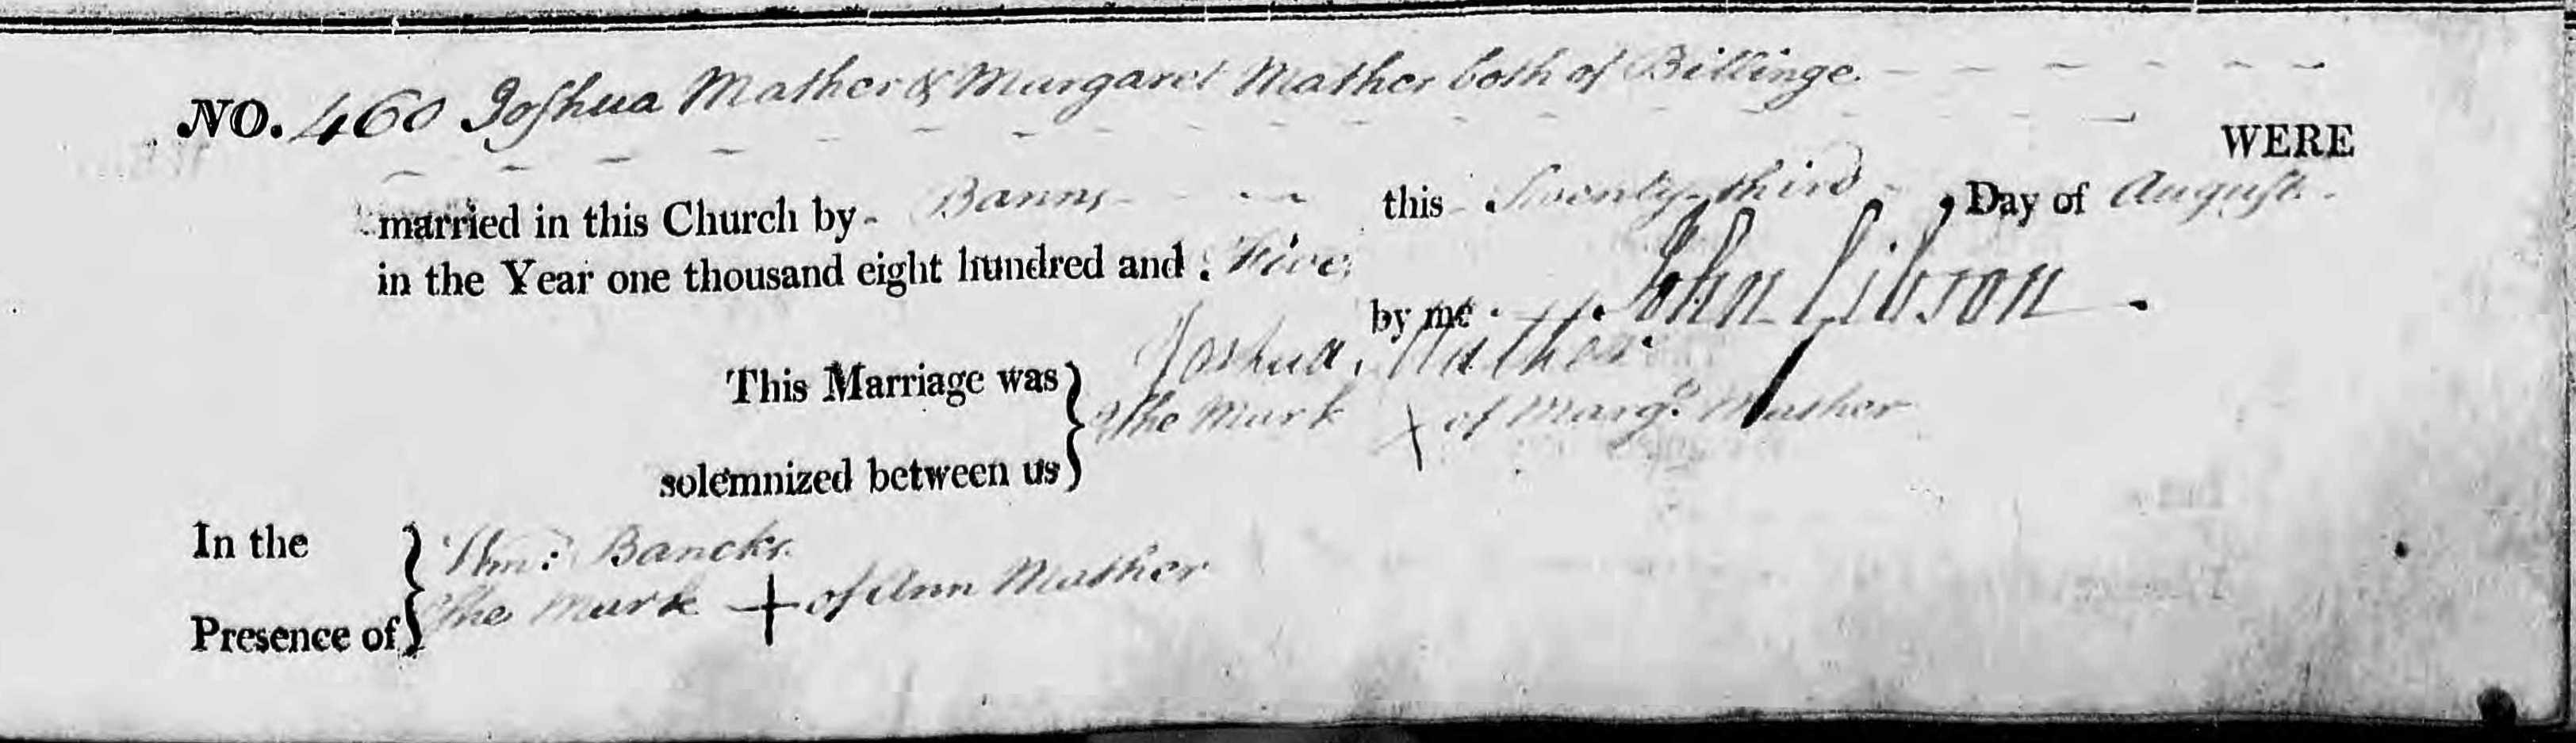 NO. 460 Joshua Mather & Margaret Mather both of Billinge.
WERE
married in this Church by Banns this Twenty-third Day of August
in the Year one thousand eight hundred and Five
by me John Gibson
This Marriage was solemnized between us } Joshua Mather
The Mark X of Margt. Mather
In the Presence of } Banckes
The Mark + of Ann Mather